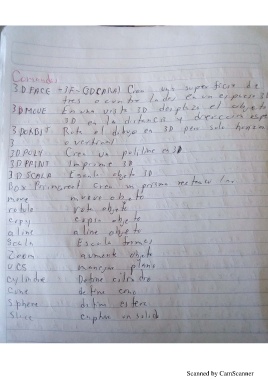 Comandos
3DFACE + IF - GDCARA) Crea una superficie de
tres o cuatro lados en un espacio 3D
3DMOVE En una vista 3D desplaza el objeto
3D en la distancia y direccion
3DORBIT Rota el dibujo en 3D pero solo horizon
o vertical
3DPOLY Crea un polilinea en 3D
3DPRINT Imprime 3D
3DSCALA Escala objeto 3D
Box Primcreat Crea un prisma rectangular
move mueve objeto
rotate rota objeto
copy copia objeto
aline aline objeto
Scala Escala formas
Zoom aumenta objeto
UCS maneja plano
cylindre Define cilindro
Cone define cono
Sphere define esfera
Slice en solido
Scanned by CamScanner